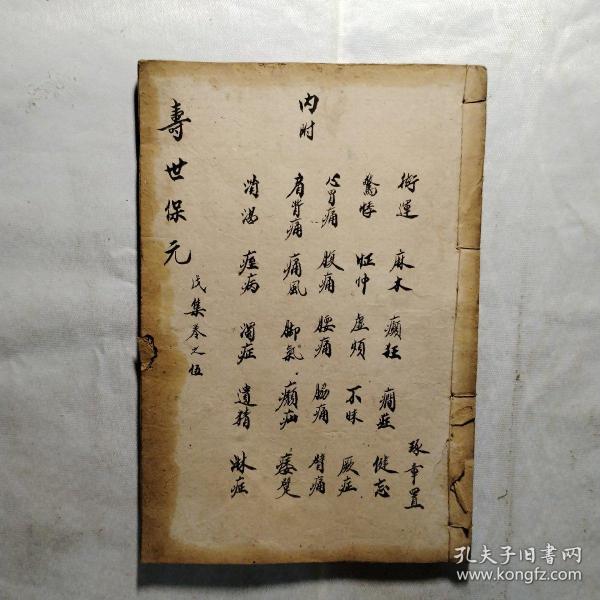 內附
麻木 癲狂 癇症 健忘
驚悸 怔忡 虛煩 不寐 厥症
心胃痛 腹痛 腰痛 脇痛 臂痛
肩背痛 痛風 脚氣 癩疝 痿躄
消渴 痓病 濁症 遺精 淋症
壽世保元
戊集卷之伍
孔夫子旧书网
www.kongfz.com